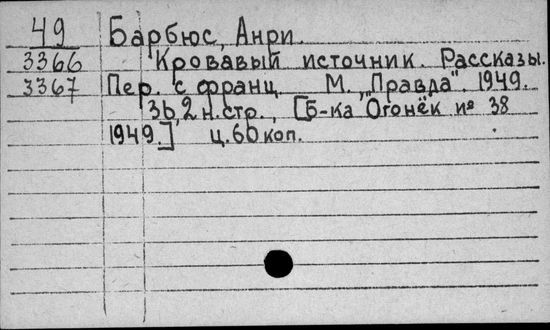 49 Барбюс, Анри.
3366 Кровавый источник. Рассказы.
3367 Пер. с франц. М. „Правда". 1949.
36,2 н.стр., [Б-ка Огонёк № 38
1949.] ц. 60 коп.